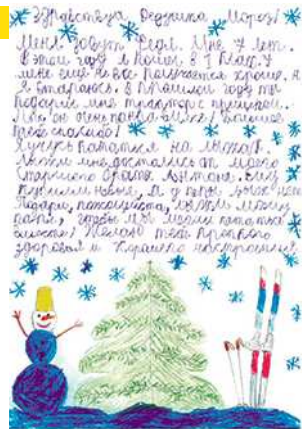 Здравствуй Дедушка Мороз!
Меня зовут Федя. Мне 7 лет.
В этом году я пошёл в 1 класс.
Мне ещё не все получается хорошо, но
я стараюсь. В прошлом году ты
подарил мне трактор с прицепом.
Мне он очень понравился! Большое
тебе спасибо!
Я учусь кататься на лыжах.
Лыжи мне достались от моего
старшего брата Антона. Ему
купили новые, а у папы лыж нет.
Подари, пожалуйста, лыжи моему
папе, чтобы мы могли кататься
вместе! Желаю тебе крепкого
здоровья и хорошего настроения!